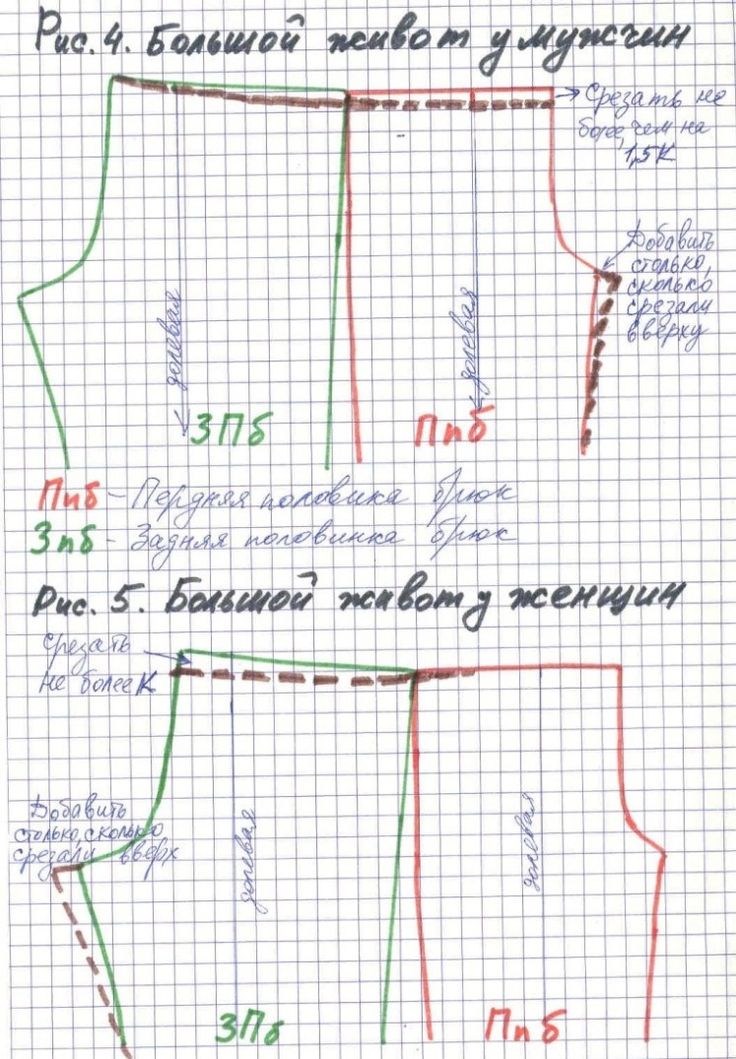 Рис. 4. Большой живот у мужчин
Срезать не
более, чем на
1,5К
Добавить
столько,
сколько
срезали
вверху
долевая
долевая
ЗПб
Ппб
Ппб - Пердняя половика брюк
Зпб - Задняя половинка брюк
Рис. 5. Большой живот у женщин
Срезать
не более К
Добавить
столько, сколько
срезали вверх
долевая
долевая
ЗПб
Ппб